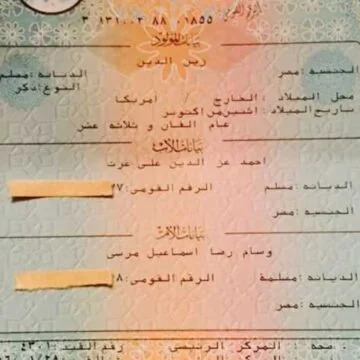 الرقم القومى
٣ ١٣١٠٠٣ ٨٨ ٠١٨٥٥
بيانات المولود
زين الدين
الجنسيه :مصر الديانه :مسلم
النوع :ذكر
محل الميلاد : الخارج / أمريكا
تاريخ الميلاد :اثنين من اكتوبر
عام الفان و ثلاثه عشر
بيانات الأب
احمد عز الدين على عزت
الديانه :مسلم الرقم القومى :٢٧
الجنسيه :مصر
بيانات الأم
وسام رضا اسماعيل مرسى
الديانه :مسلمة الرقم القومى :٢٨
الجنسيه :مصر
صحه : المركز الرئيسى رقم القيد :٤٣٠١